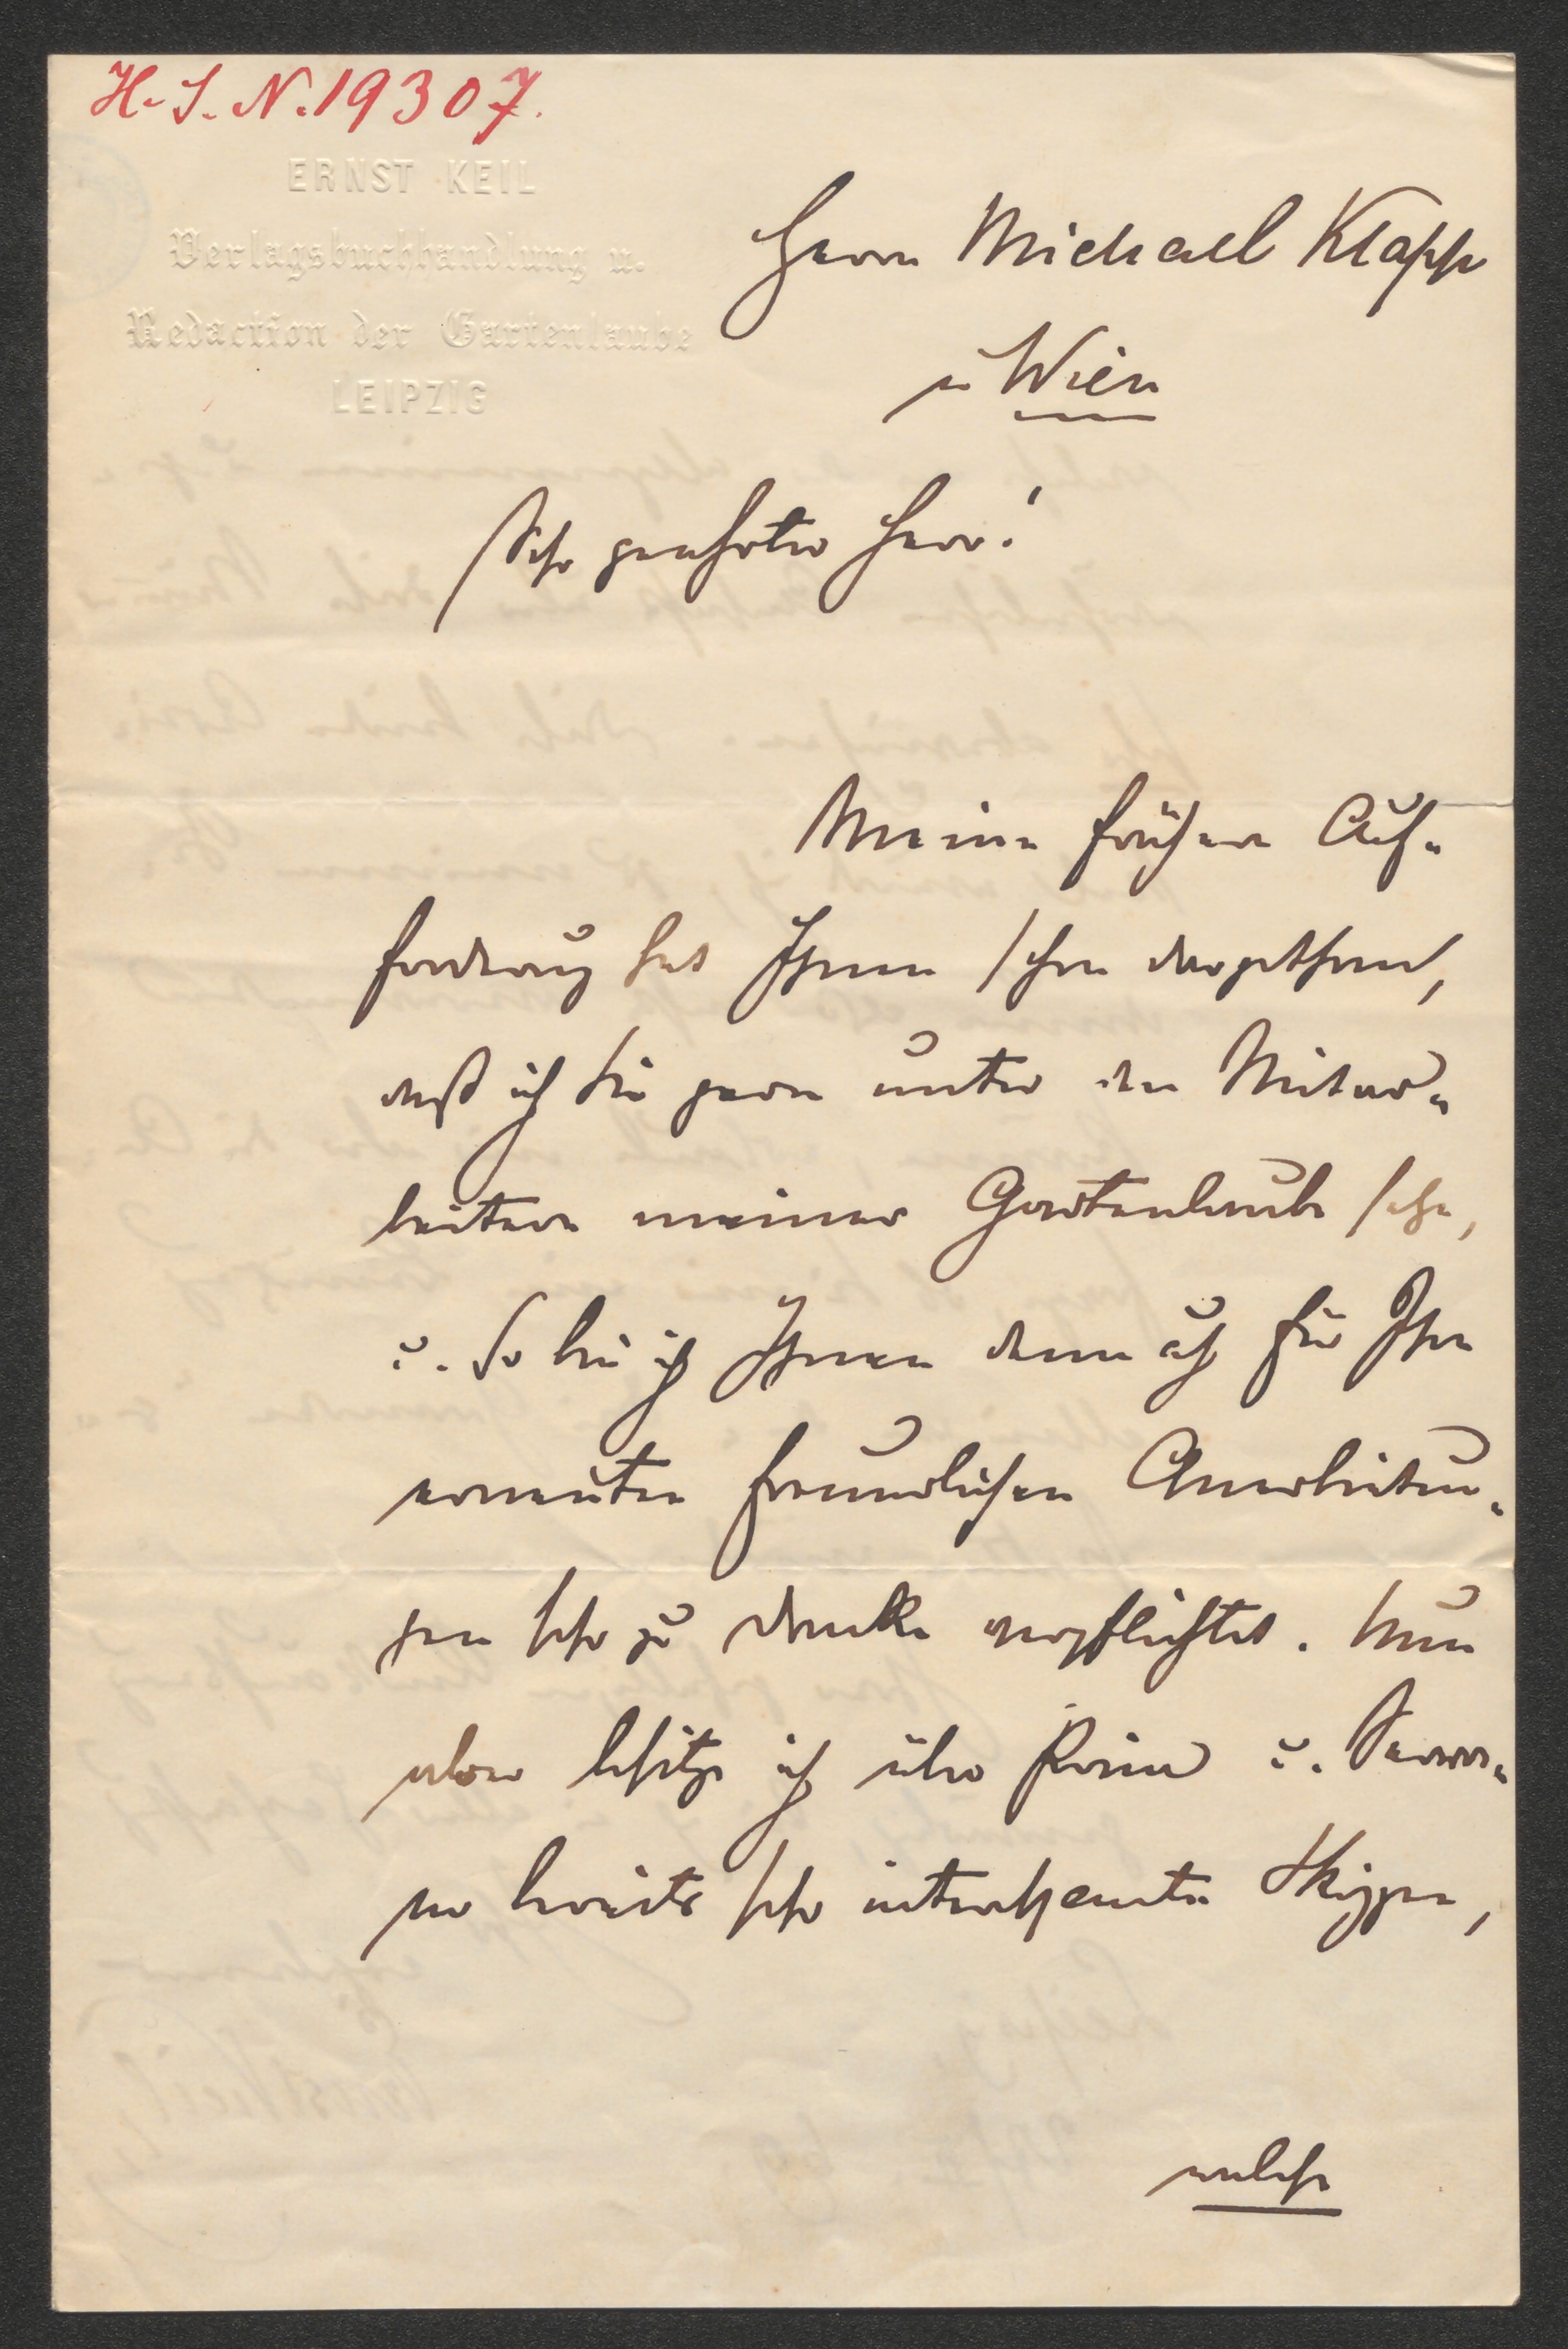 H. I. N. 19307.
ERNST KEIL
Verlagsbuchhandlung u.
Redaction der Gartenlaube
LEIPZIG
Herrn Michael Klapp
in Wien
Sehr geehrter Herr!
Meine frühere Auf-
forderung hat Ihnen schon dargethan,
daß ich Sie gern unter den Mitar-
beitern meiner Gartenlaube sehe,
u. so bin ich Ihnen denn auch für Ihre
erneuten freundlichen Anerbietun-
gen sehr zu Danke verpflichtet. Nun
aber besitze ich über Prim u. Serra-
no bereits sehr interessante Skizzen,
welche